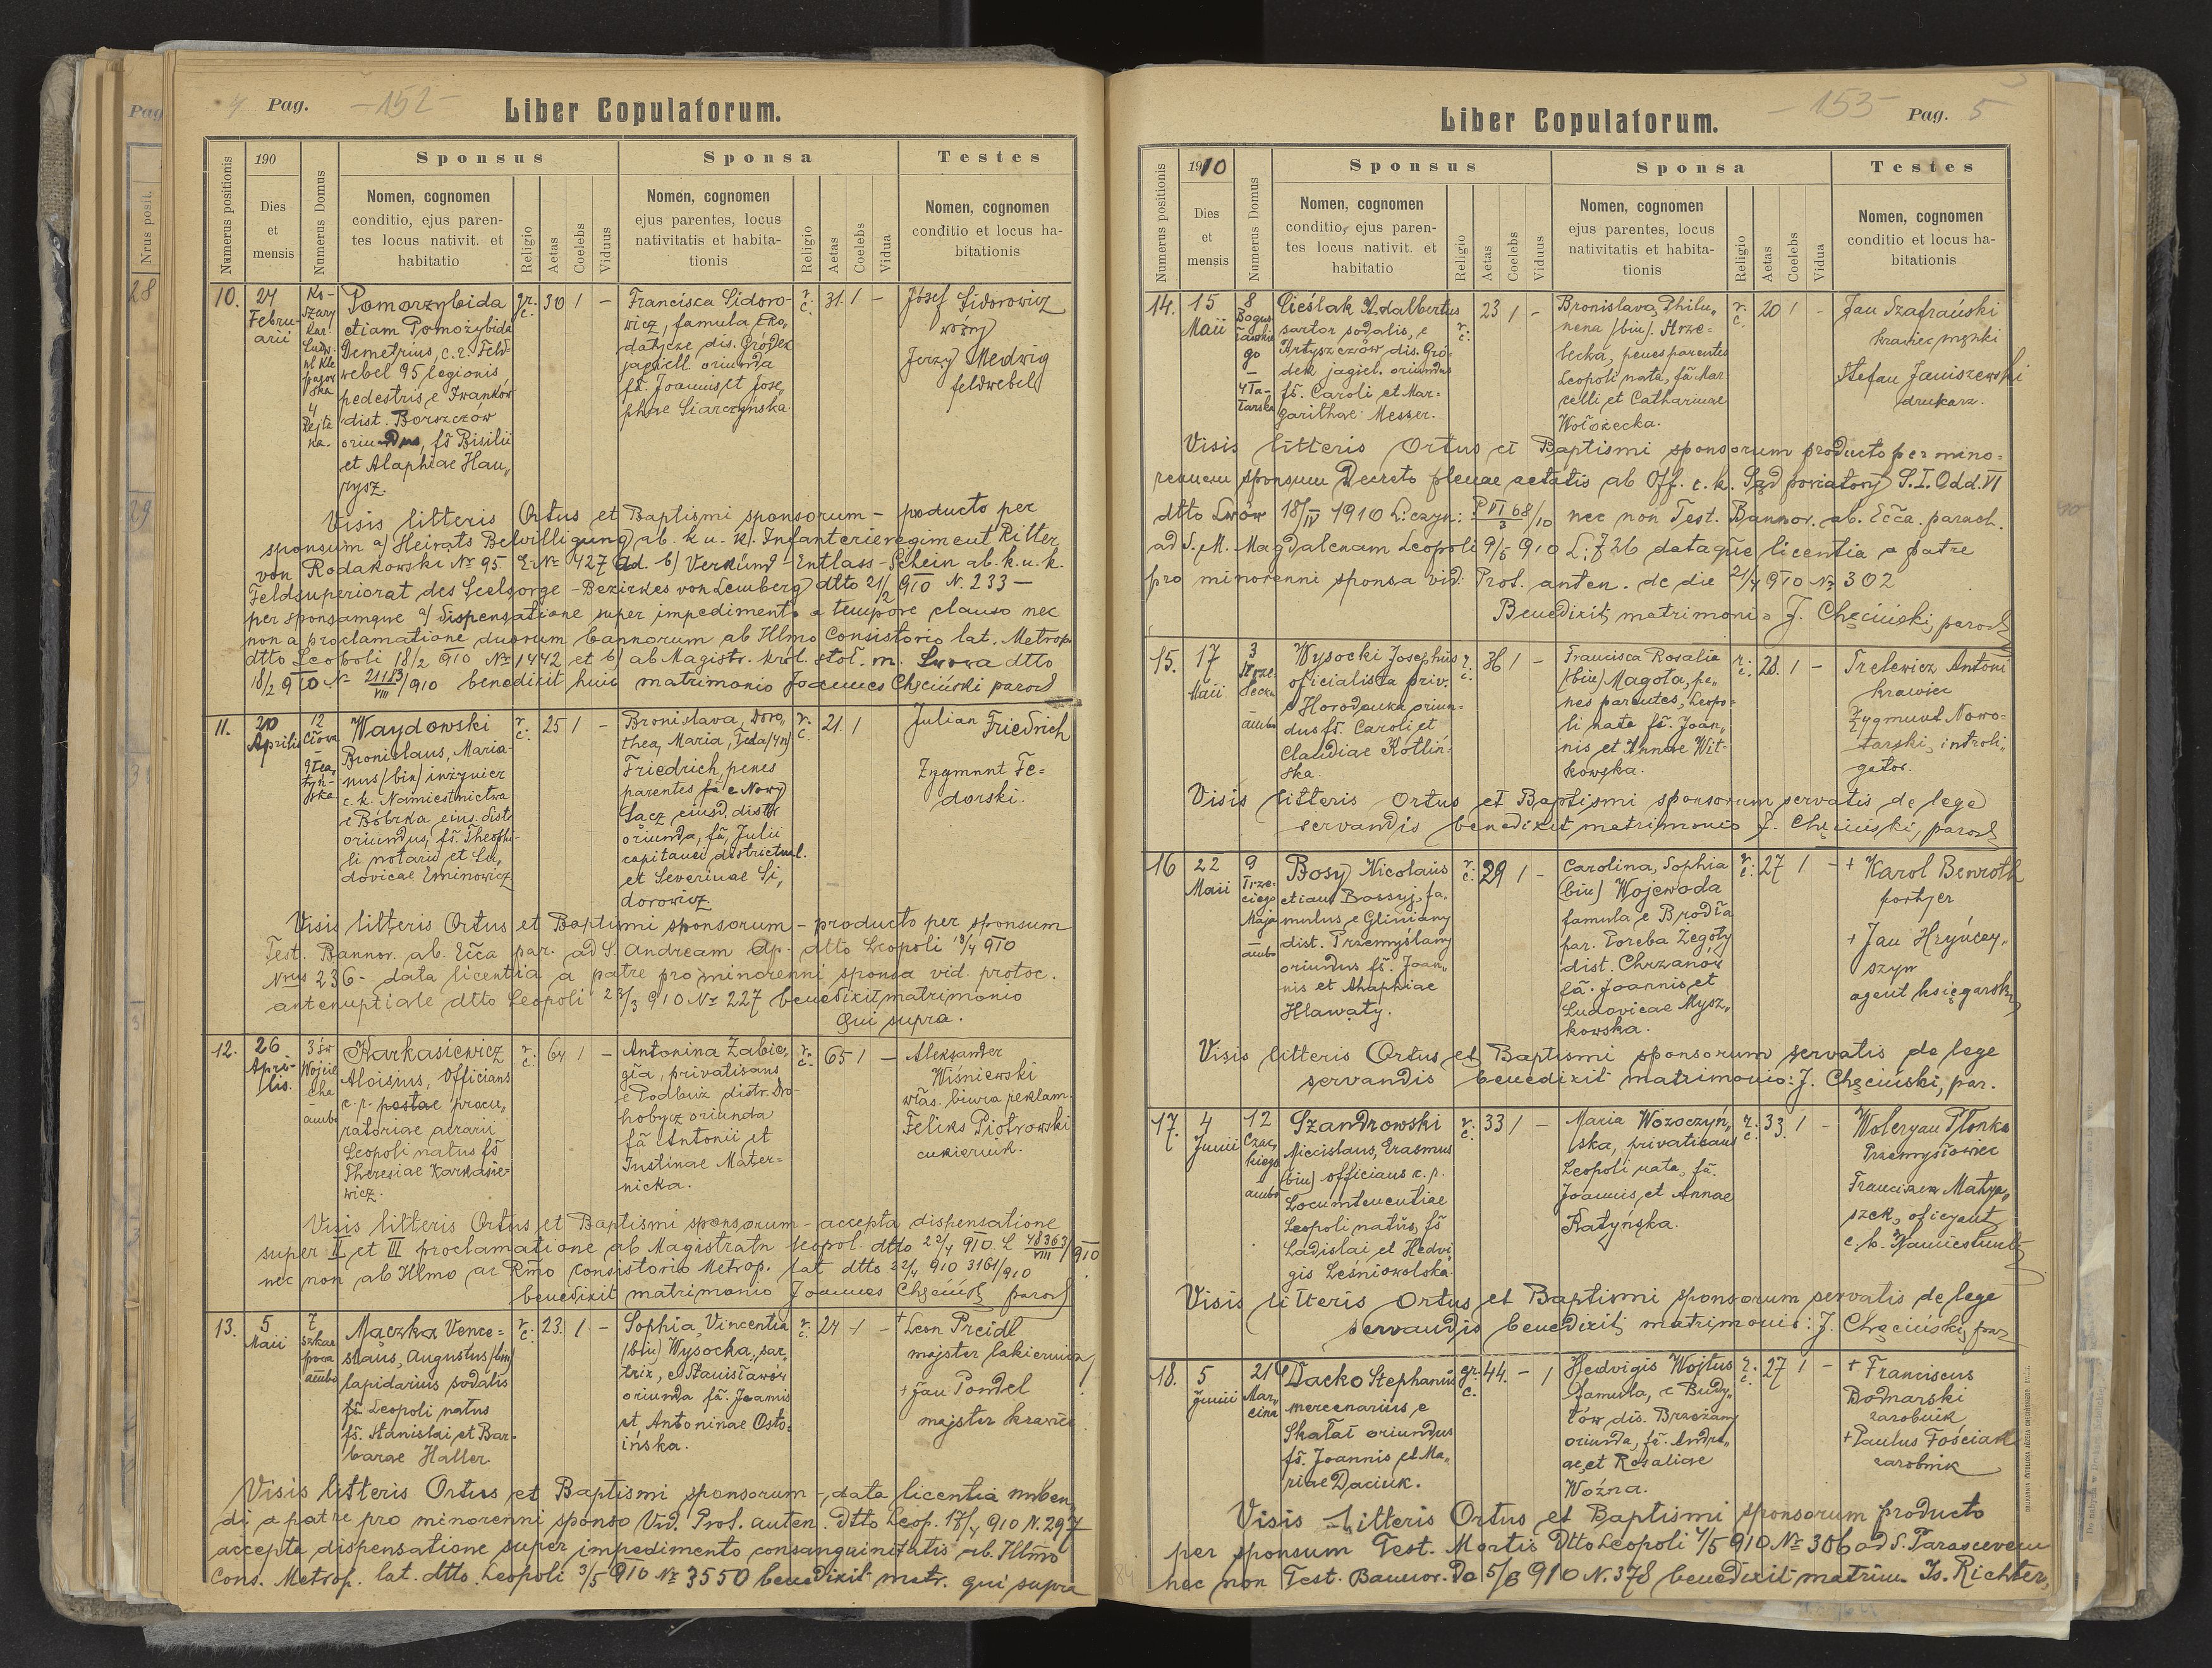 4 Pag. -152-
Liber Copulatorum.
Numerus positionis
190
Dies
et
mensis
Numerus Domus
Sponsus
Nomen, cognomen
conditio, ejus paren-
tes locus nativit. et
habitatio
Religio
Aetas
Coelebs
Viduus
Sponsa
Nomen, cognomen
ejus parentes, locus
nativitatis et habita-
tionis
Religio
Aetas
Coelebs
Vidua
Testes
Nomen, cognomen
conditio et locus ha-
bitationis
10.
24
Febru-
arii
Pomorzybida
etiam Pomożybida
Demetrius, c. r. Feld-
webel 95 legionis
pedestris e Iwanków
dist. Borszczów
oriundus, fs Bisilii
et Alaphiae Hau„
rysz.
gr. c.
30
1
–
Francisca Sidoro-
wicz, famula, e Ro„
datycze dis. Gródek
jagiell. oriunda
fa. Joannis et Jose„
phae Siarczyńska.
r. c.
31.
1
–
Józef Sidorowicz
woźny
Jerzy Medwig
feldwebel
Visis litteris Ortus et Baptismi sponsorum – producto per
sponsum a) Heirats Bewilligung ab. k. u. k. Infanterieregiment Ritter
von Rodakowski № 95. E№ 427 Ad. b) Verkünd-Entlass-Schein ab. k. u. k.
Feldsuperiorat des Seelsorge-Bezirkes von Lemberg dtto 21/2 910 N. 233 –
per sponsamque a) dispensatione super impedimento a tempore clauso nec
non a proclamatione duorum bannorum ab Illmo Consistorio lat. Metrop.
dtto Leopoli 18/2 910 № 1442 et b) ab Magistr. król. stoł. m. Lwowa dtto
18/2 910 № 21183/VIII/910 benedixit huic matrimonio Joannes Chęciński paroch
11.
20
Aprilis
12
Waydowski
Bronislaus, Maria-
nus (bin) inżynier
c. k. Namiestnictwa
e Bóbrka eius. dist
oriundus, fs. Theophi-
li notarii et Lu„
dovicae Eminowicz
r. c.
25
1
–
Bronislava, Doro„
thea, Maria, Tecla (4n)
Friedrich, penes
parentes fa e Nowy
Sącz eiusd. distr
oriunda, fa, Julii
capitanei districtual.
et Severinae Si„
dorowicz.
r. c.
21.
1
Julian Friedrich
Zygmunt Fe=
dorski.
Visis litteris Ortus et Baptismi sponsorum – producto per sponsum
Test. Bannor. ab. Ecca par. ad S. Andream Ap. dtto Leopoli 18/4 910
Nrus 236 – data licentia a patre pro minorenni sponsa vid. protoc.
antenuptiale dtto Leopoli 23/3 910 № 227 benedixit matrimonio
Qui supra.
12.
26
Apri-
lis.
3 św
Wojcie
cha
–
ambo
Karkasiewicz
Aloisius, Officians
c. r. postae procu„
ratoriae aerarii
Leopoli natus fs
Theresiae Karkasie-
wicz.
r. c.
64
1
–
Antonina Zabie„
gła, privatisans
e Podbuż distr. Dro-
hobycz oriunda
fa Antonii et
Justinae Mater=
nicka.
r. c.
65
1
–
Aleksander
Wiśniewski
włas. biura reklam.
Feliks Piotrowski
cukiernik.
Visis litteris Ortus et Baptismi sponsorum – accepta dispensatione
super II et III proclamatione ab Magistratu Leopol. dtto 22/4 910. L 48363/VIII/910
nec non ab Illmo ac Rmo consistorio Metrop. lat dtto 22/4 910 3161/910
benedixit matrimonio Joannes Chęciński paroch
13.
5
Maii
7
ambo
Mączka Vence=
slaus, Augustus (bin)
lapidarius sodalis
fs Leopoli natus
fs. Stanislai et Bar-
barae Haller
r. c.
23.
1
–
Sophia, Vincentia
(bin) Wysocka, sar„
trix, e Stanisławów
oriunda fa. Joannis
et Antoninae Osto-
ińska.
r. c.
24
1
–
+ Leon Preidl
majster lakiernicz
+ Jan Pondel
majster krawiec
Visis litteris Ortus et Baptismi sponsorum –, data licentia nuben„
di a patre pro minorenni sponso Vid. Prot. anten. Dtto Leop. 18/4 910 N. 297
accepta dispensatione super impedimento consanguinitatis ab. Illmo
Cons. Metrop. lat. dtto. Leopoli 3/5 910 № 3550 benedixit matr. qui supra
Liber Copulatorum.
-153- Pag. 5
Numerus positionis
1910
Dies
et
mensis
Numerus Domus
Sponsus
Nomen, cognomen
conditio, ejus paren-
tes locus nativit. et
habitatio
Religio
Aetas
Coelebs
Viduus
Sponsa
Nomen, cognomen
ejus parentes, locus
nativitatis et habita-
tionis
Religio
Aetas
Coelebs
Vidua
Testes
Nomen, cognomen
conditio et locus ha-
bitationis
14.
15
Maii
8
Bogus
ławskie
go
–
4 Ta-
tarska
Cieślak Adalbertus
sartor sodalis, e
Artyszczów dis. Gró-
dek jagiel. oriundus
fs. Caroli et Mar-
garithae Messer.
r. c.
23
1
–
Bronislava, Philu„
nena (bin). Strze-
lecka, penes parentes
Leopoli nata, fa Mar
celli et Catharinae
Wołoźecka.
r. c.
20
1
–
Jan Szafrański
krawiec męski
Stefan Janiszewski
drukarz.
Visis litteris Ortus et Baptismi sponsorum producto per mino-
rennem sponsum Decreto plenae aetatis ab Off. c. k. Sąd powiatowy S. I. Odd. VI
dtto Lwów 18/IV 1910 L. czyn: P VI 68/3/10 nec non Test. Bannor. ab. Ecca. paroch.
ad S. M. Magdalenam Leopoli 9/5 910 L: 726 dataque licentia a patre
pro minorenni sponsa vid: Prot. anten. de die 21/4 910 № 302
Benedixit matrimonio J. Chęciński, paroch
15.
17
Maii
3
Strze-
lecka
–
ambo
Wysocki Josephus
oficialista priv.
e Horodenka oriun-
dus fs. Caroli et
Claudiae Kotliń-
ska.
r. c.
36
1
–
Francisca Rosalia
(bin) Magota, pe„
nes parentes, Leopo-
li nata fa. Joan„
nis et Annae Wit-
kowska.
r. c.
28.
1
–
Trelewicz Antoni
krawiec
Zygmunt Nowo-
tarski, introli„
gator.
Visis litteris Ortus et Baptismi sponsorum servatis de lege
servandis benedixit matrimonio J. Chęciński, paroch
16
22
Maii
9
Trze-
ciego
Maja
–
ambo
Bosy Nicolaus
etiam Bassyj, fa„
mulus e Gliniany
dist. Przemyślany
oriundus fs. Joan„
nis et Ahaphiae
Hlawaty.
r. c.
29
1
–
Carolina, Sophia
(bin) Wojewoda
famula e Brodła
par. Poręba Żegoty
dist. Chrzanów
fa. Joannis et
Ludovicae Mysz„
kowska.
r. c.
27
1
–
+ Karol Benroth
portjer
+ Jan Hryńcey„
szyn
agent księgarski
Visis litteris Ortus et Baptismi sponsorum servatis de lege
servandis benedixit matrimonio: J. Chęciński, par.
17.
4
Junii
12
Czac„
kiego
–
ambo
Szandrowski
Miecislaus, Erasmus
(bin) officians c. r.
Locumtenentiae
Leopoli natus, fs
Ladislai et Hedvi„
gis Leśniowolska.
r. c.
33
1
–
Maria Wozoczyń„
ska, privatisans
Leopoli nata, fa.
Joannis et Annae
Katyńska.
r. c.
33.
1
–
Waleryan Płonka
Przemysłowiec
Franciszek Matya„
szek, oficyant
c. k. Namiestnict
Visis litteris Ortus et Baptismi sponsorum servatis de lege
servandis benedixit matrimonio: J. Chęciński, par
18.
5
Junii
21
Mar„
cina
Dacko Stephanus
mercenarius e
Skałat oriundus
fs. Joannis et Ma„
riae Daciuk.
gr. c.
44.
–
1
Hedvigis Wojtus
famula, e Budy„
łów dis. Brzeżany
oriunda, fa. Andre„
ae et Rosaliae
Woźna.
r. c.
27
1
–
+ Franciscus
Bodnarski
zarobnik
+ Paulus Fościak
zarobnik
Visis litteris Ortus et Baptismi sponsorum producto
per sponsum Test. Mortis Dtto Leopoli 4/5 910 № 306 ad S. Parasceveam
nec non Test. Bannor. Do 5/6 910 N. 378 benedixit matrim. Is. Richter,